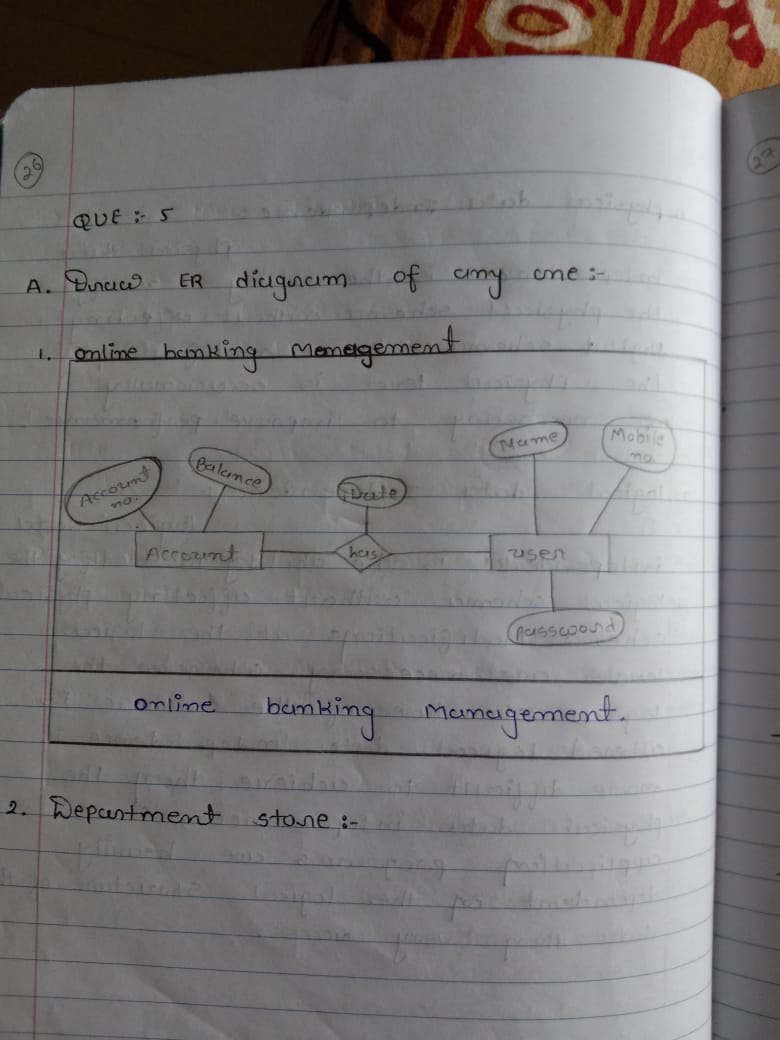 26
27
QUE :- 5
A. Draw ER diagram of any one :-
1. online banking Menegement
Account no.
Balance
Date
Name
Mobile no.
Account
has
user
Password
online banking management.
2. Department store :-